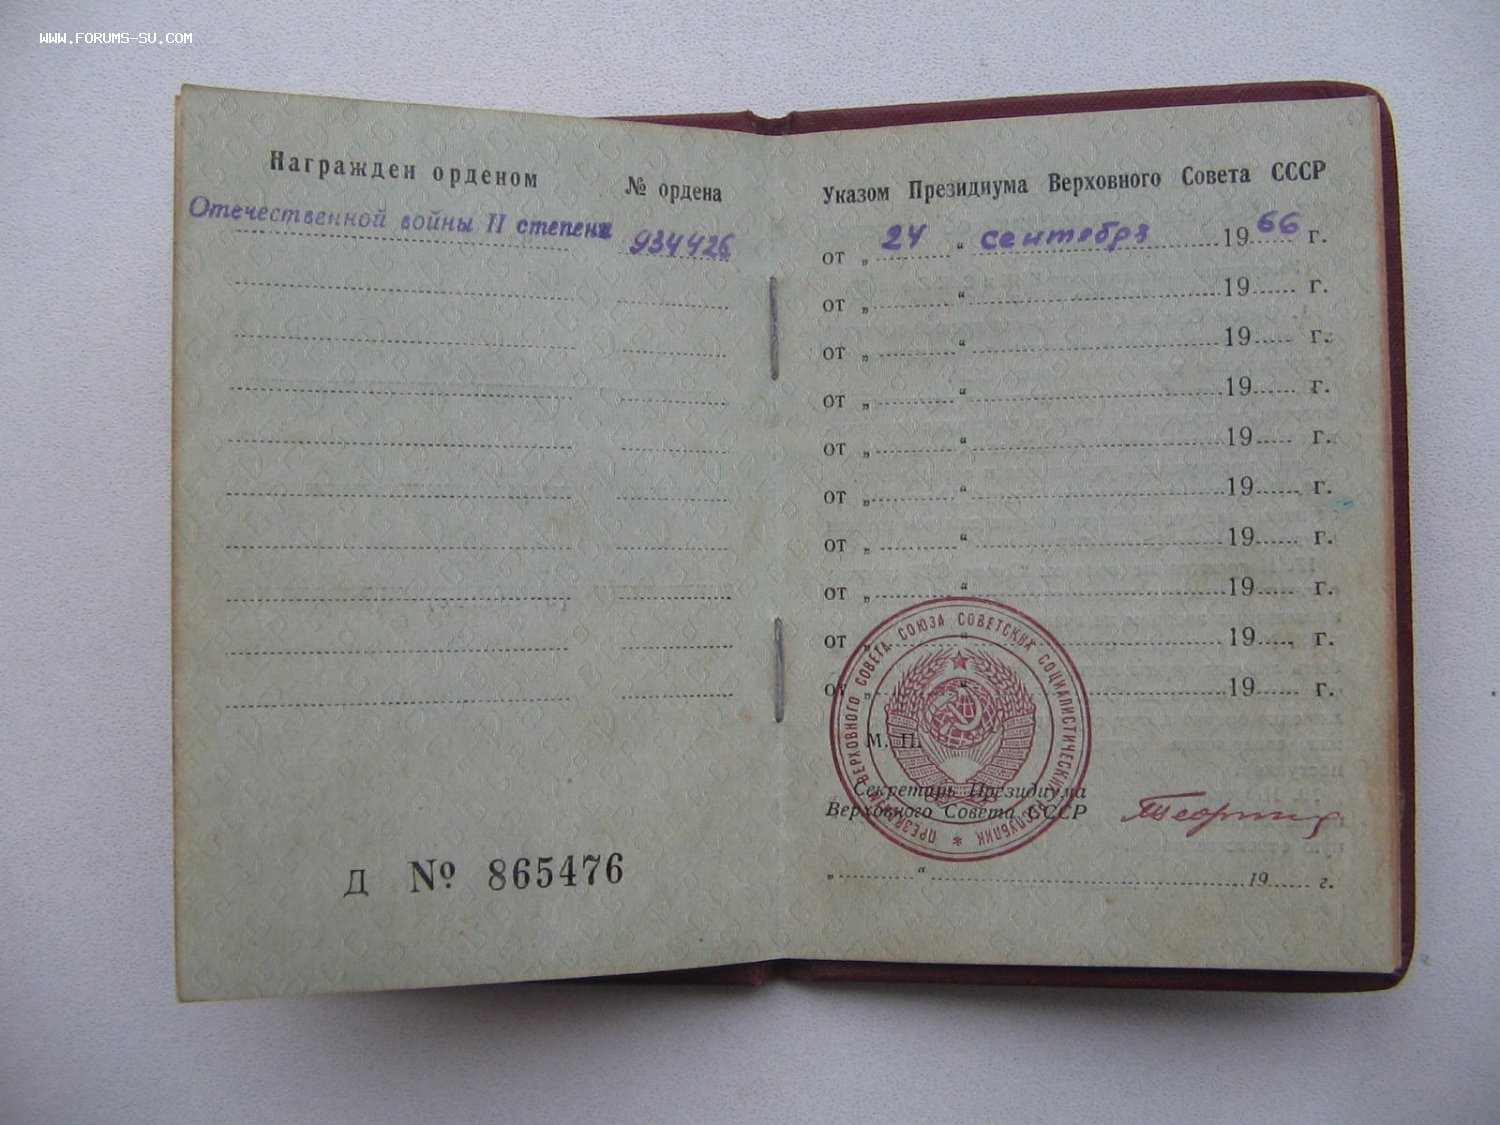 WWW.FORUMS-SU.COM
Награжден орденом
№ ордена
Отечественной войны II степени
934426
Д № 865476
Указом Президиума Верховного Совета СССР
от „ 24 “ сентября 1966 г.
от „ “ 19 г.
от „ “ 19 г.
от „ “ 19 г.
от „ “ 19 г.
от „ “ 19 г.
от „ “ 19 г.
от „ “ 19 г.
от „ “ 19 г.
от „ “ 19 г.
М. П.
ПРЕЗИДИУМ ВЕРХОВНОГО СОВЕТА СОЮЗА СОВЕТСКИХ СОЦИАЛИСТИЧЕСКИХ РЕСПУБЛИК
Секретарь Президиума
Верховного Совета СССР
„ “ 19 г.